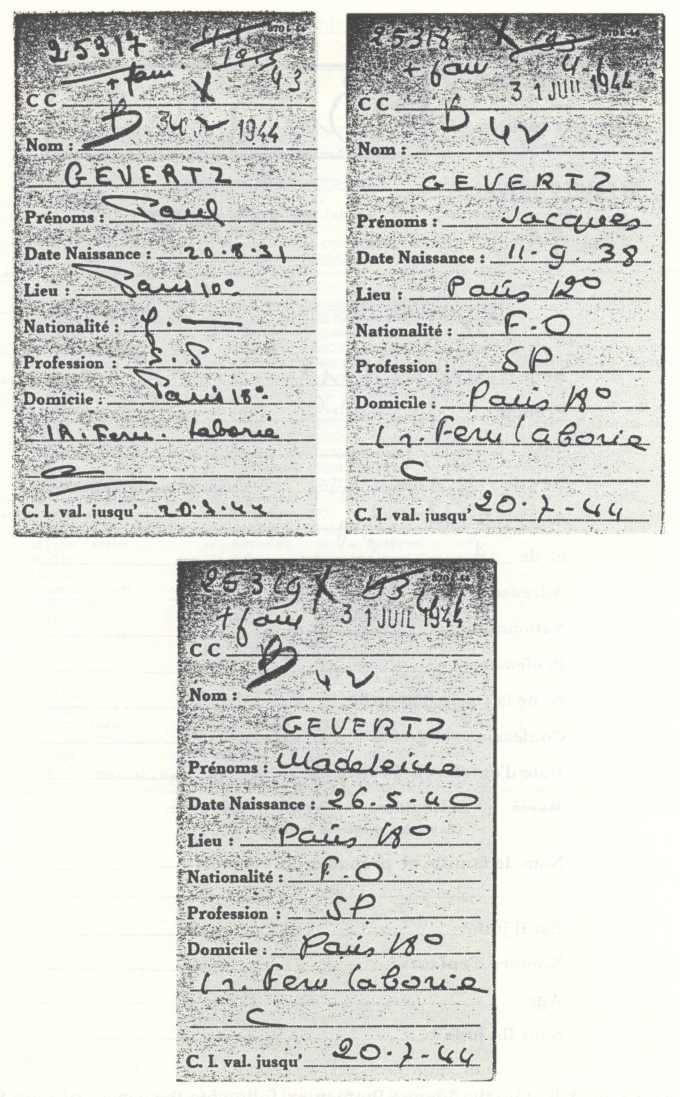 25317
+ fam. X 43
C C
B. 1944
Nom :
GEVERTZ
Prénoms : Paul
Date Naissance : 20.8.31
Lieu : Paris 10e
Nationalité :
Profession : S.P
Domicile : Paris 18e
1 R. Fern. Laborie
C. I. val. jusqu'
25318 X
+ fam
C C 31 JUIL 1944
B 42
Nom :
GEVERTZ
Prénoms : Jacques
Date Naissance : 11-9.38
Lieu : Paris 12e
Nationalité : F.O
Profession : SP
Domicile : Paris 18e
1 r. Fern Laborie
C
C. I. val. jusqu' 20.7-44
25319 X
+ fam 31 JUIL 1944
C C
B 42
Nom :
GEVERTZ
Prénoms : Madeleine
Date Naissance : 26.5-40
Lieu : Paris 18e
Nationalité : F.O
Profession : SP.
Domicile : Paris 18e
1 r. Fern Laborie
C
C. I. val. jusqu' 20.7-44